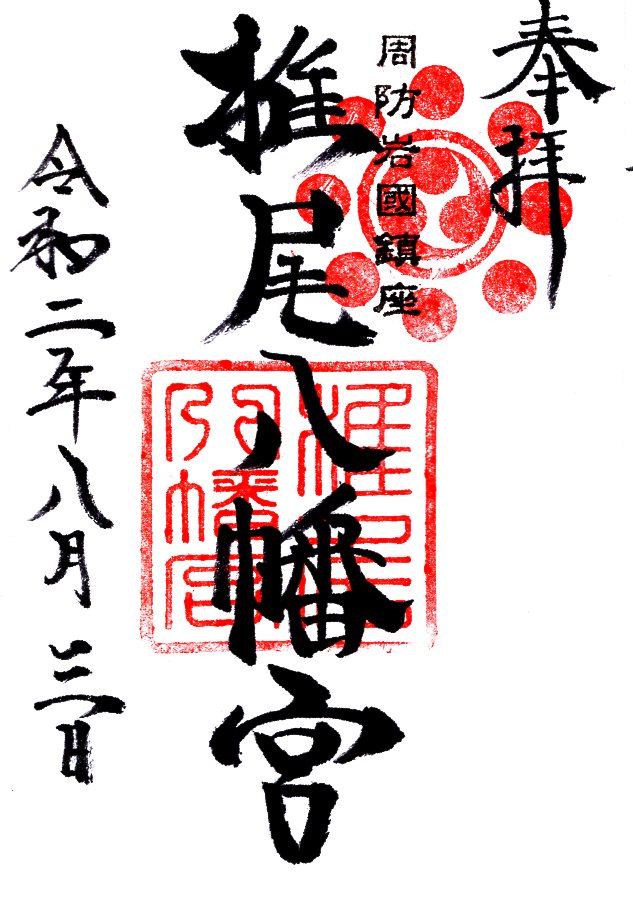 奉拝
周防岩國鎮座
椎尾八幡宮
椎尾
八幡宮
令和二年八月三日